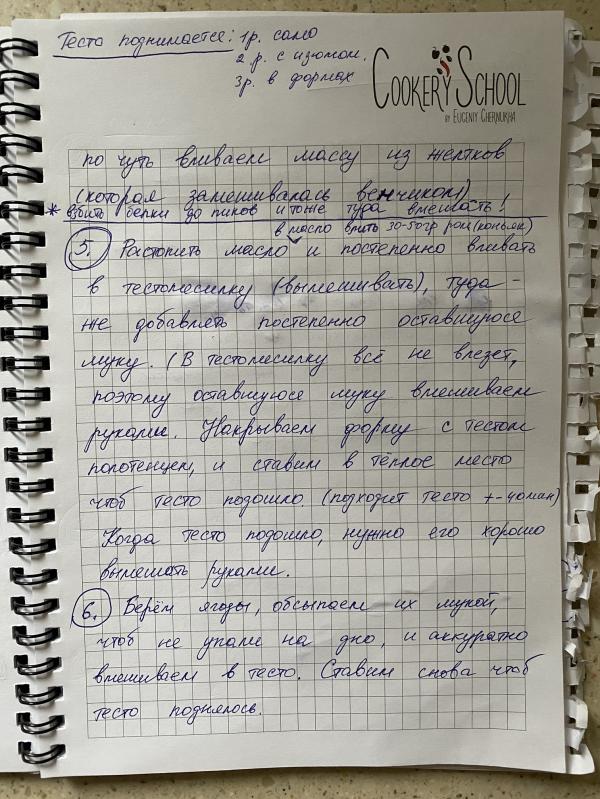 Тесто поднимается: 1р. само
2 р. с изюмом.
3р. в формах
COOKERY SCHOOL
BY EUGENIY CHERNUKHA
по чуть вливаем массу из желтков
(которая замешивалась венчиком)
* взбить белки до пиков и тоже туда вмешать!
в масло влить 30-50гр ром (коньяк)
5. Растопить масло и постепенно вливать
в тестомесилку (вымешивать), туда-
же добавлять постепенно оставшуюся
муку. (В тестомесилку всё не влезет,
поэтому оставшуюся муку вмешиваем
руками. Накрываем форму с тестом
полотенцем, и ставим в тёплое место
чтоб тесто подошло. (подходит тесто +-40мин)
Когда тесто подошло, нужно его хорошо
вымешать руками.
6. Берём ягоды, обсыпаем их мукой,
чтоб не упали на дно, и аккуратно
вмешиваем в тесто. Ставим снова чтоб
тесто поднялось.